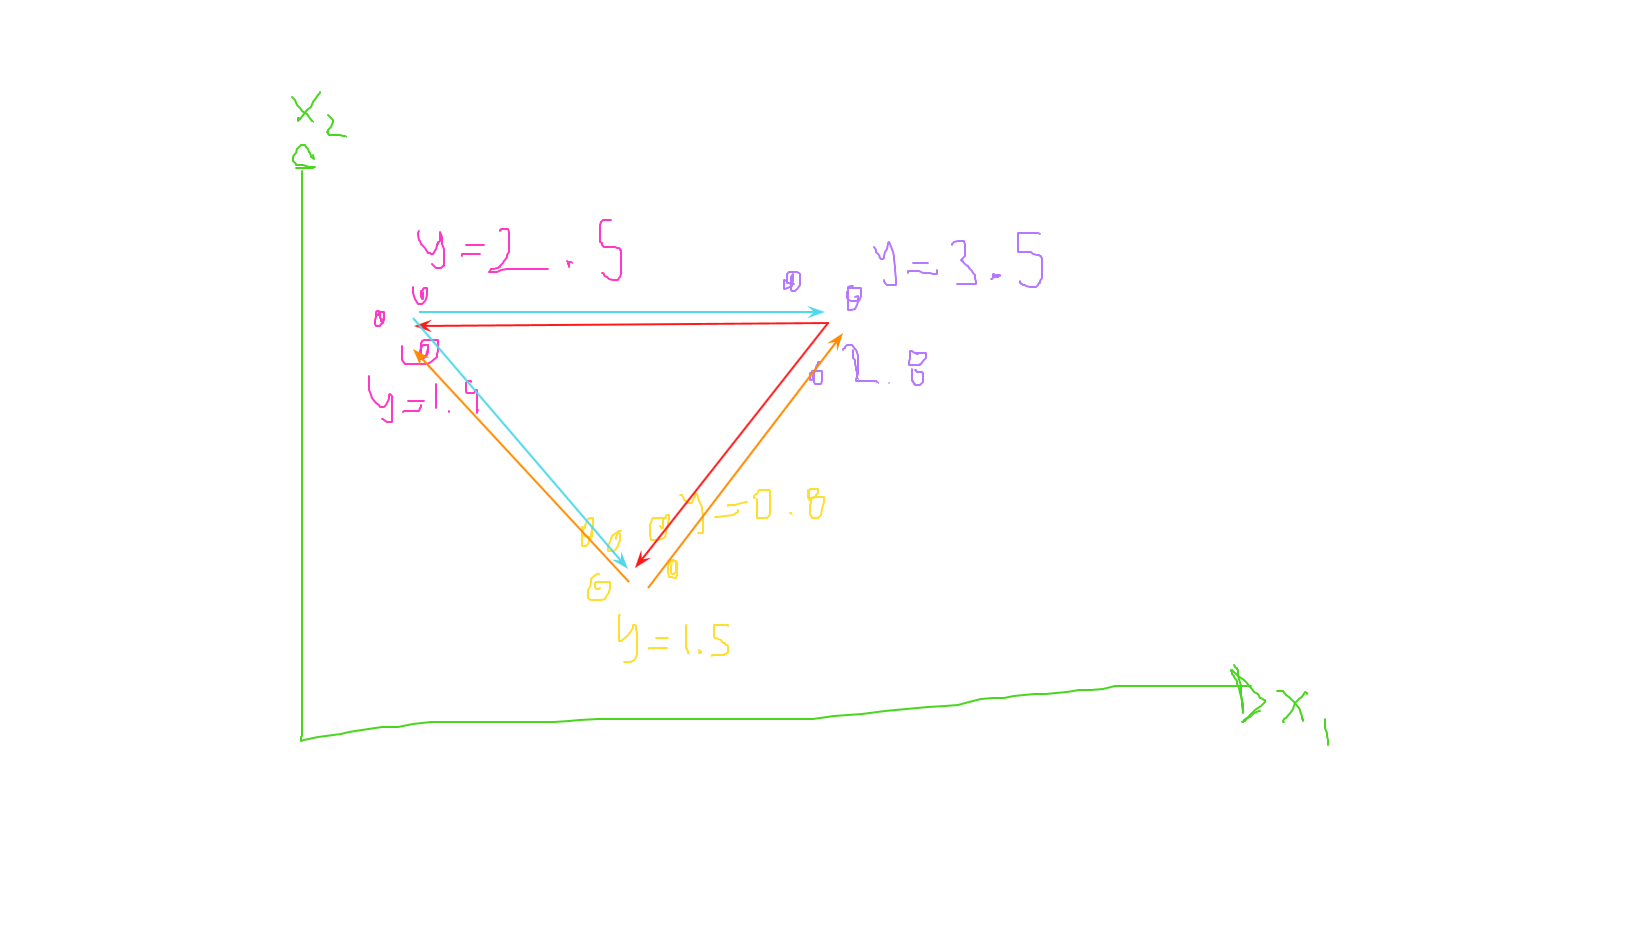 x2
y=2.5
y=3.5
2.8
y=1.9
y=0.8
y=1.5
x1